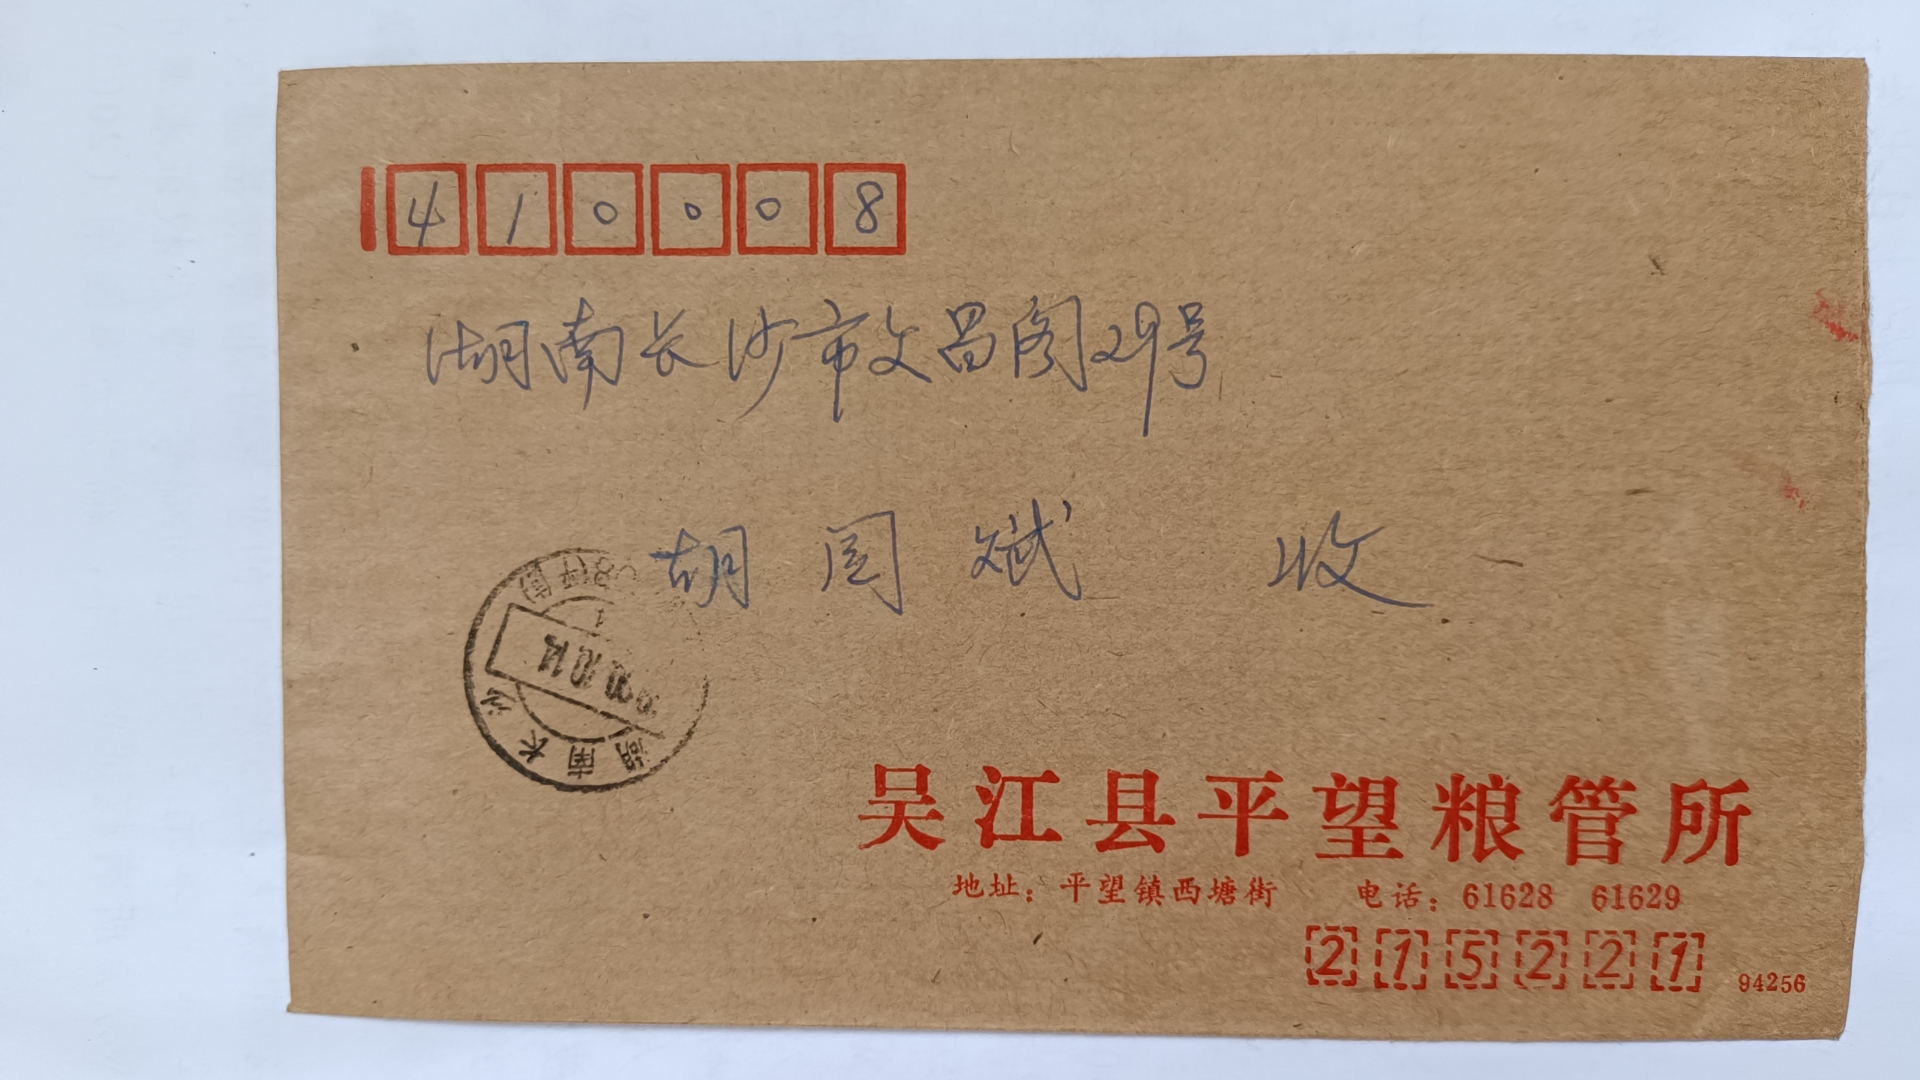 410008
湖南长沙市文昌阁29号
胡闰斌 收
湖南长沙
吴江县平望粮管所
地址：平望镇西塘街 电话：61628 61629
215221
94256